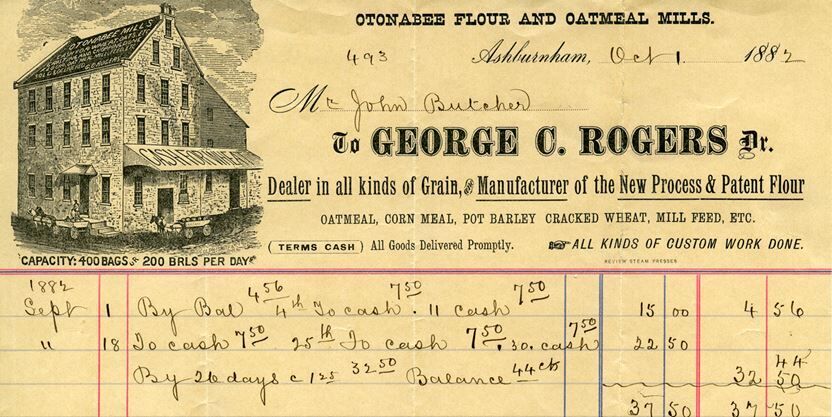 OTONABEE FLOUR AND OATMEAL MILLS.
493 Ashburnham, Oct 1 1882
Mr John Butcher
To GEORGE C. ROGERS Dr.
Dealer in all kinds of Grain, and Manufacturer of the New Process & Patent Flour
OATMEAL, CORN MEAL, POT BARLEY CRACKED WHEAT, MILL FEED, ETC.
( TERMS CASH ) All Goods Delivered Promptly. ALL KINDS OF CUSTOM WORK DONE.
REVIEW STEAM PRESSES
OTONABEE MILLS
CASH FOR WHEAT
CAPACITY: 400 BAGS 200 BRLS PER DAY
1882
Sept 1 By Bal 4 56 4th To cash 7 50 . 11 cash 7 50 15 00 4 56
" 18 To cash 7 50 25th To cash 7 50 . 30. cash 7 50 22 50
By 26 days c 1 25 32 50 Balance 44 cts 44
32 50
37 50 37 50